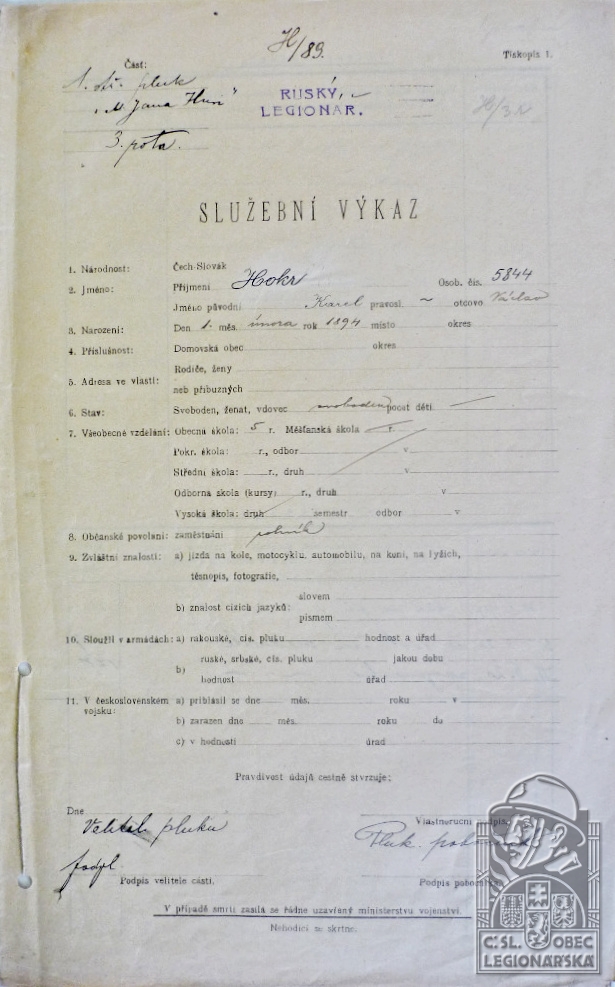 H/89.
Tiskopis 1.
Část:
1. stř. pluk
"M. Jana Husi"
3. rota.
RUSKÝ
LEGIONÁŘ.
SLUŽEBNÍ VÝKAZ
1. Národnost: Čech-Slovák
2. Jméno: Příjmení Hokr Osob. čís. 5844
Jméno původní Karel pravosl. ~ otcovo Václav
3. Narození: Den 1. měs. února rok 1894 místo okres
4. Příslušnost: Domovská obec okres
5. Adresa ve vlasti: Rodiče, ženy
neb příbuzných
6. Stav: Svoboden, ženat, vdovec svoboden počet dětí —
7. Všeobecné vzdělání: Obecná škola: 5 r. Měšťanská škola r.
Pokr. škola: r., odbor v
Střední škola: r., druh v
Odborná škola (kursy) r., druh v
Vysoká škola: druh semestr odbor v
8. Občanské povolání: zaměstnání rolník
9. Zvláštní znalosti: a) jízda na kole, motocyklu, automobilu, na koni, na lyžích,
těsnopis, fotografie,
b) znalost cizích jazyků: slovem
písmem
10. Sloužil v armádách: a) rakouské, čís. pluku hodnost a úřad
b) ruské, srbské, čís. pluku jakou dobu
hodnost úřad
11. V československém vojsku: a) přihlásil se dne měs. roku v
b) zařazen dne měs. roku do
c) v hodnosti úřad
Pravdivost údajů čestně stvrzuje:
Dne
Velitel pluku
Vlastnoruční podpis
Pluk. pobočník
podpl.
Podpis velitele části.
Podpis pobočníka
V případě smrti zasílá se řádně uzavřený ministerstvu vojenství.
Nehodící se škrtne.
ČSL. OBEC
LEGIONÁŘSKÁ